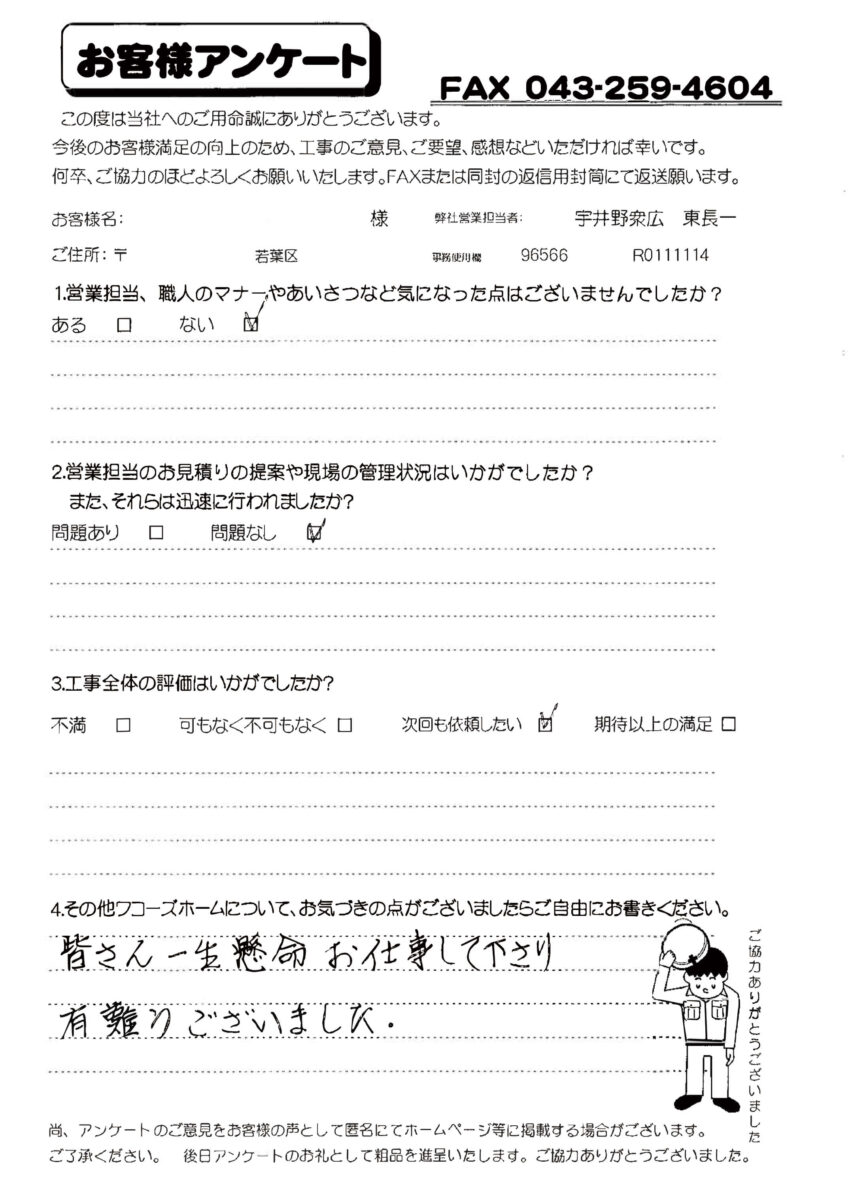 お客様アンケート
FAX 043-259-4604
この度は当社へのご用命誠にありがとうございます。
今後のお客様満足の向上のため、工事のご意見、ご要望、感想などいただければ幸いです。
何卒、ご協力のほどよろしくお願いいたします。FAXまたは同封の返信用封筒にて返送願います。
お客様名: 様 弊社営業担当者: 宇井野衆広 東長一
ご住所:〒 若葉区 事務使用欄 96566 R0111114
1.営業担当、職人のマナーやあいさつなど気になった点はございませんでしたか?
ある □ ない ☑
2.営業担当のお見積りの提案や現場の管理状況はいかがでしたか?
また、それらは迅速に行われましたか?
問題あり □ 問題なし ☑
3.工事全体の評価はいかがでしたか?
不満 □ 可もなく不可もなく □ 次回も依頼したい ☑ 期待以上の満足 □
4.その他ワコーズホームについて、お気づきの点がございましたらご自由にお書きください。
皆さん一生懸命お仕事して下さり
有難うございました.
ご協力ありがとうございました
尚、アンケートのご意見をお客様の声として匿名にてホームページ等に掲載する場合がございます。
ご了承ください。 後日アンケートのお礼として粗品を進呈いたします。ご協力ありがとうございました。